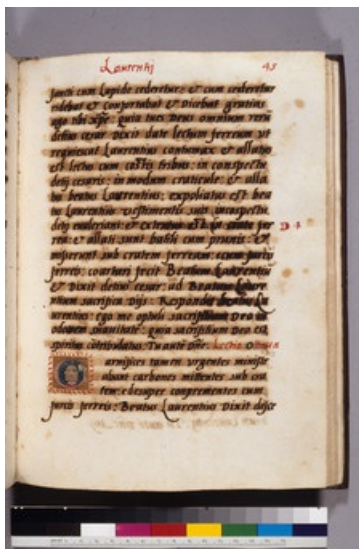 Laurentij 45
sancti cum lapide cederetur: & cum cederetur
ridebat & confortabat & dicebat gratias
ago tibi xpe: quia tues Deus omnium rerū
decius cesar dixit date lectum ferreum ut
requiescat Laurentius contumax & allatus
est lectus cum costis tribus: in conspectu
decij cesaris: in modum craticule: & alla
tus beatus Laurentius: expoliatus est bea
tus Laurentius vestimentis suis inconspectu
decij & valeriani: & extentus est in crate fer
rea: & allati sunt batuli cum prunis: &
miserunt sub cratem ferream: & cum furcis
ferreis: coartari fecit Beatum Laurentium
& Dixit decius cesar: ad Beatum Laure
ntium sacrifica Dijs: Respondit beatus La
urentius: ego me optuli sacrifitium Deo in
odorem suauitatis: quia sacrifitium Deo est
spiritus cōtribulatus. Tu autē Dñe: Lectio
arnifices tamen urgentes ministr
abant carbones mittentes sub cra
tem: & desuper conprementes cum
furcis ferreis: Beatus Laurentius Dixit disce